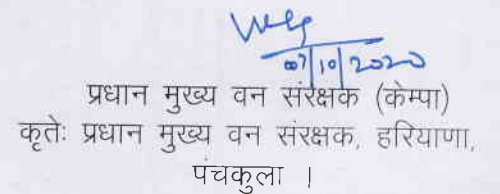 07/10/2020
प्रधान मुख्य वन संरक्षक (केम्पा)
कृतेः प्रधान मुख्य वन संरक्षक, हरियाणा,
पंचकुला ।